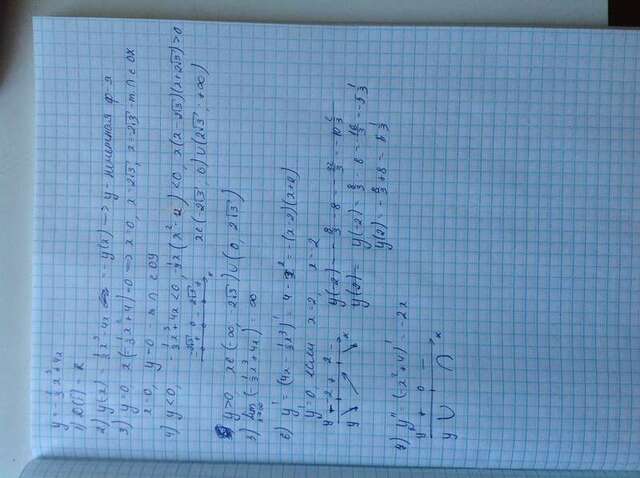 y = -1/3 x³ + 4x
1) D(f) = R
2) y(-x) = 1/3 x³ - 4x = -y(x) → y - нечетная ф-я
3) y=0, x(-1/3 x² + 4) = 0 ⇒ x=0, x=2√3, x=2√3 - т. ∩ с OX
x=0, y=0 - т. ∩ с OY
4) y<0, -1/3 x³ + 4x < 0, -1/3 x(x² - 12) < 0, x(x-2√3)(x+2√3) > 0
-2√3 0 2√3 x x∈(-2√3; 0)∪(2√3; +∞)
y>0 x∈(-∞, -2√3)∪(0, 2√3)
5) lim x→∞ (-1/3 x³ + 4x) = ∞
6) y' = (4x - 1/3 x³)' = 4 - x² = -(x-2)(x+2)
y'=0, если x=2, x=-2
y' - -2 + 2 - x
y
y(-2) = -8/3 - 8 = -32/3 = -10 2/3
y(2) = y(-2) = 8/3 - 8 = -16/3 = -5 1/3
y(2) = -8/3 + 8 = 5 1/3
7) y'' = (-x² + 4)' = -2x
y'' + 0 - x
y ∪ ∩